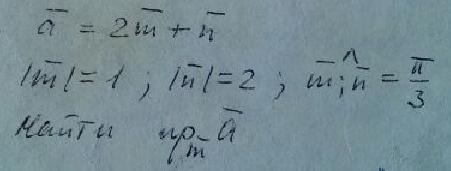 ā = 2m̄ + n̄
|m̄| = 1 ; |n̄| = 2 ; m̄;^n̄ = π/3
Найти пр_m̄ ā